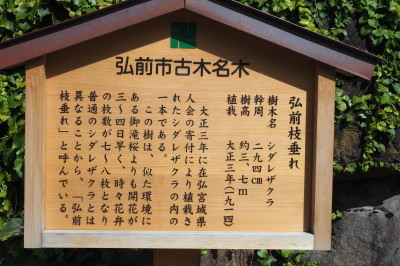 弘前市古木名木
弘前枝垂れ
樹木名 シダレザクラ
幹周 二九四cm
樹高 約三、七m
植栽 大正三年(一九一四)
大正三年に在弘宮城県
人会の寄付により植栽さ
れたシダレザクラの内の
一本である。
この樹は、似た環境に
ある御滝桜よりも開花が
三〜四日早く、時々花弁
の枚数が七〜八枚となり
普通のシダレザクラとは
異なることから、「弘前
枝垂れ」と呼んでいる。